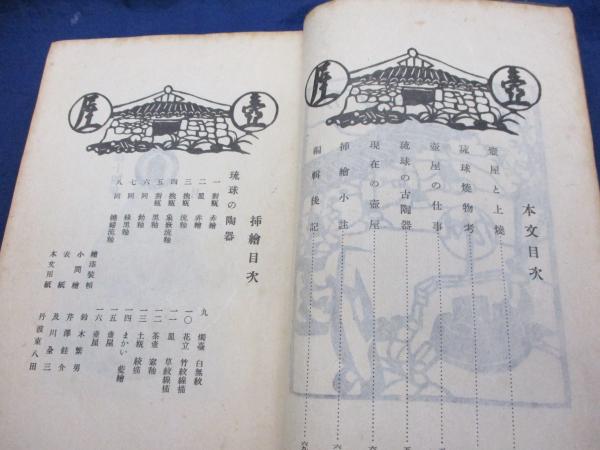 壺屋
本文目次
壺屋と上燒
琉球燒物考
壺屋の仕事
琉球の古陶器
現在の壺屋
挿繪小註
編輯後記
壺屋
挿繪目次
琉球の陶器
一 對瓶 赤繪
二 皿 赤繪
三 抱瓶 流釉
四 抱瓶 象嵌流釉
五 對瓶 黑釉
六 同 飴釉
七 同 綠黑釉
八 同
九 燭臺 白無紋
一〇 花立 竹紋線描
一一 皿 草紋線描
一二 茶壺 窓釉
一三 土瓶 絞描
一四 まかい 藍繪
一五 壺屋
一六 壺屋
繪漆裝幀 鈴木繁男
小間繪 芹澤銈介
表紙 及川全三
本文用紙 丹波東八田